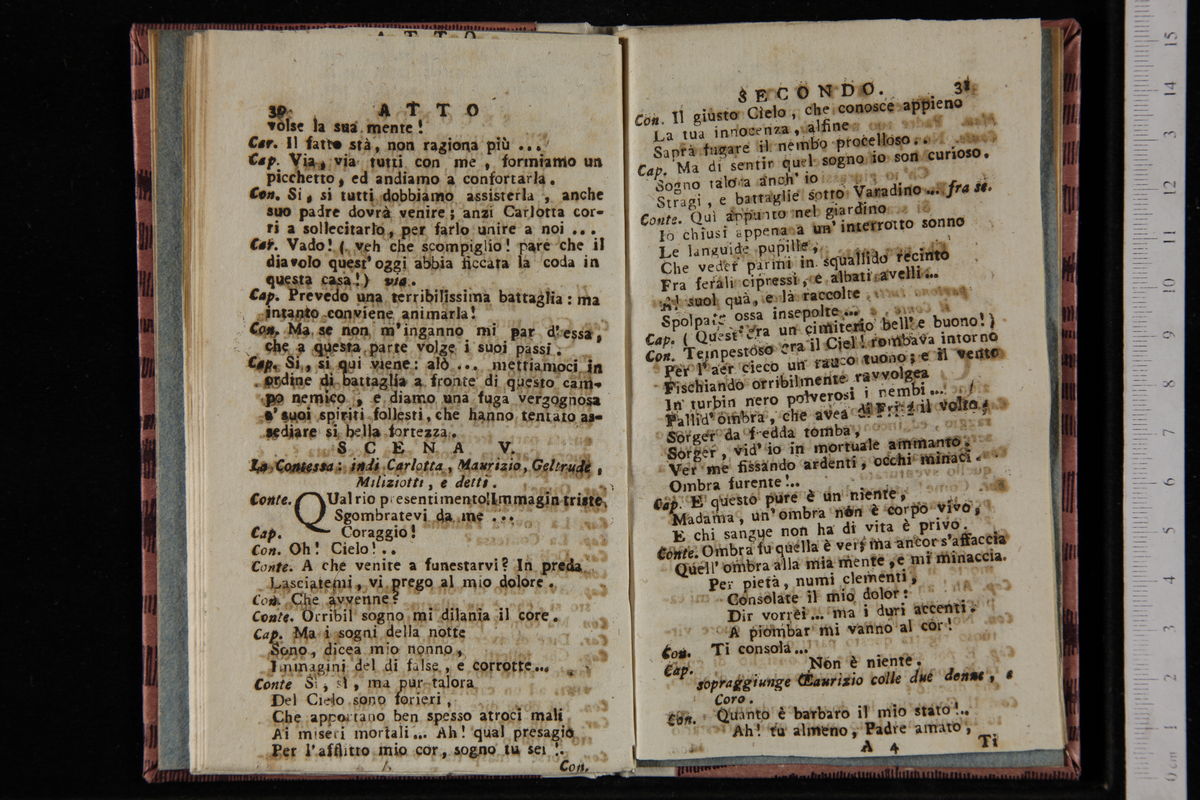 30 ATTO
volse la sua mente!
Car. Il fatto stà, non ragiona più ...
Cap. Via, via tutti con me, formiamo un
picchetto, ed andiamo a confortarla.
Con. Si, si tutti dobbiamo assisterla, anche
suo padre dovrà venire; anzi Carlotta cor-
ri a sollecitarlo, per farlo unire a noi ...
Car. Vado! (veh che scompiglio! pare che il
diavolo quest' oggi abbia ficcata la coda in
questa casa!) via.
Cap. Prevedo una terribilissima battaglia: ma
intanto conviene animarla!
Con. Ma se non m'inganno mi par d'essa,
che a questa parte volge i suoi passi.
Cap. Si, si qui viene: alò ... mettiamoci in
ordine di battaglia a fronte di questo cam-
po nemico, e diamo una fuga vergognosa
a' suoi spiriti follesti, che hanno tentato as-
sediare sì bella fortezza.
SCENA V.
La Contessa: indi Carlotta, Maurizio, Geltrude,
Miliziotti, e detti.
Conte. QUal rio presentimento! Immagin triste,
Sgombratevi da me ...
Cap. Coraggio!
Con. Oh! Cielo!..
Conte. A che venite a funestarvi? In preda
Lasciatemi, vi prego al mio dolore.
Con. Che avvenne?
Conte. Orribil sogno mi dilania il core.
Cap. Ma i sogni della notte
Sono, dicea mio nonno,
Immagini del di false, e corrotte...
Conte Sì, sì, ma pur talora
Del Cielo sono forieri,
Che apportano ben spesso atroci mali
Ai miseri mortali... Ah! qual presagio
Per l'afflitto mio cor, sogno tu sei!.
Con.
SECONDO. 31
Con. Il giusto Cielo, che conosce appieno
La tua innocenza, alfine
Saprà fugare il nembo procelloso..
Cap. Ma di sentir quel sogno io son curioso.
Sogno talora anch' io
Stragi, e battaglie sotto Varadino... fra se.
Conte. Quì appunto nel giardino
Io chiusi appena a un' interrotto sonno
Le languide pupille,
Che veder parmi in squallido recinto
Fra ferali cipressi, e albati avelli...
Al suol quà, e là raccolte
Spolpate ossa insepolte...
Cap. (Quest' era un cimiterio bell' e buono!)
Con. Tempestoso era il Ciel! rombava intorno
Per l'aer cieco un rauco tuono; e il vento
Fischiando orribilmente ravvolgea
In turbin nero polverosi i nembi...
Pallid' ombra, che avea di Fritz il volto,
Sorger da fredda tomba,
Sorger, vid' io in mortuale ammanto:
Ver me fissando ardenti, occhi minaci.
Ombra furente!..
Cap. E questo pure è un niente,
Madama, un' ombra non è corpo vivo,
E chi sangue non ha di vita è privo.
Conte. Ombra fu quella è ver; ma ancor s'affaccia
Quell' ombra alla mia mente, e mi minaccia.
Per pietà, numi clementi,
Consolate il mio dolor:
Dir vorrei... ma i duri accenti
A piombar mi vanno al cor!
Con. Ti consola...
Cap. Non è niente.
sopraggiunge Maurizio colle due donne, e
Coro.
Con. Quanto è barbaro il mio stato!..
Ah! tu almeno, Padre amato,
A 4 Ti